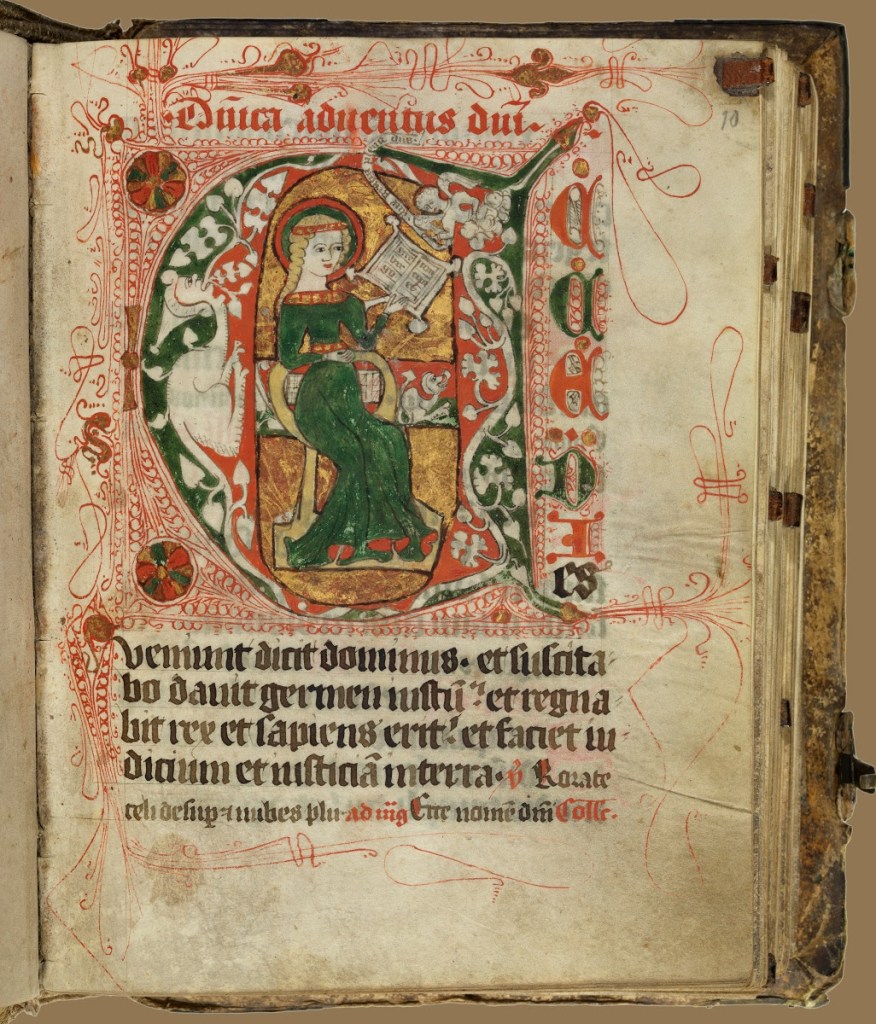 Dn̄ica aduentus dn̄i.
10
E
C
C
E
D
I
es
veniunt dicit dominus. et suscita
bo dauit germen iustū. et regna
bit rex et sapiens erit. et faciet iu
dicium et iusticiā in terra. v̄ Rorate
celi desup̄ ⁊ nubes plu. ad m̄g Ecce nomē dn̄i Colle.